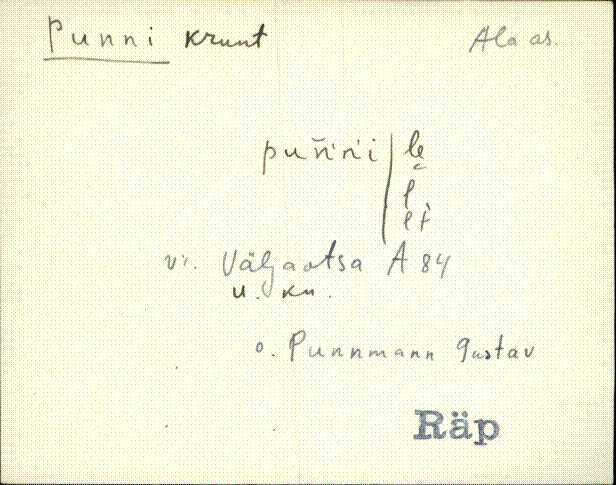 Punni krunt Ala as.
puň'n'i | le̬
l
lt
vr. Väljaotsa A 84
u. kn.
o. Punnmann Gustav
Räp